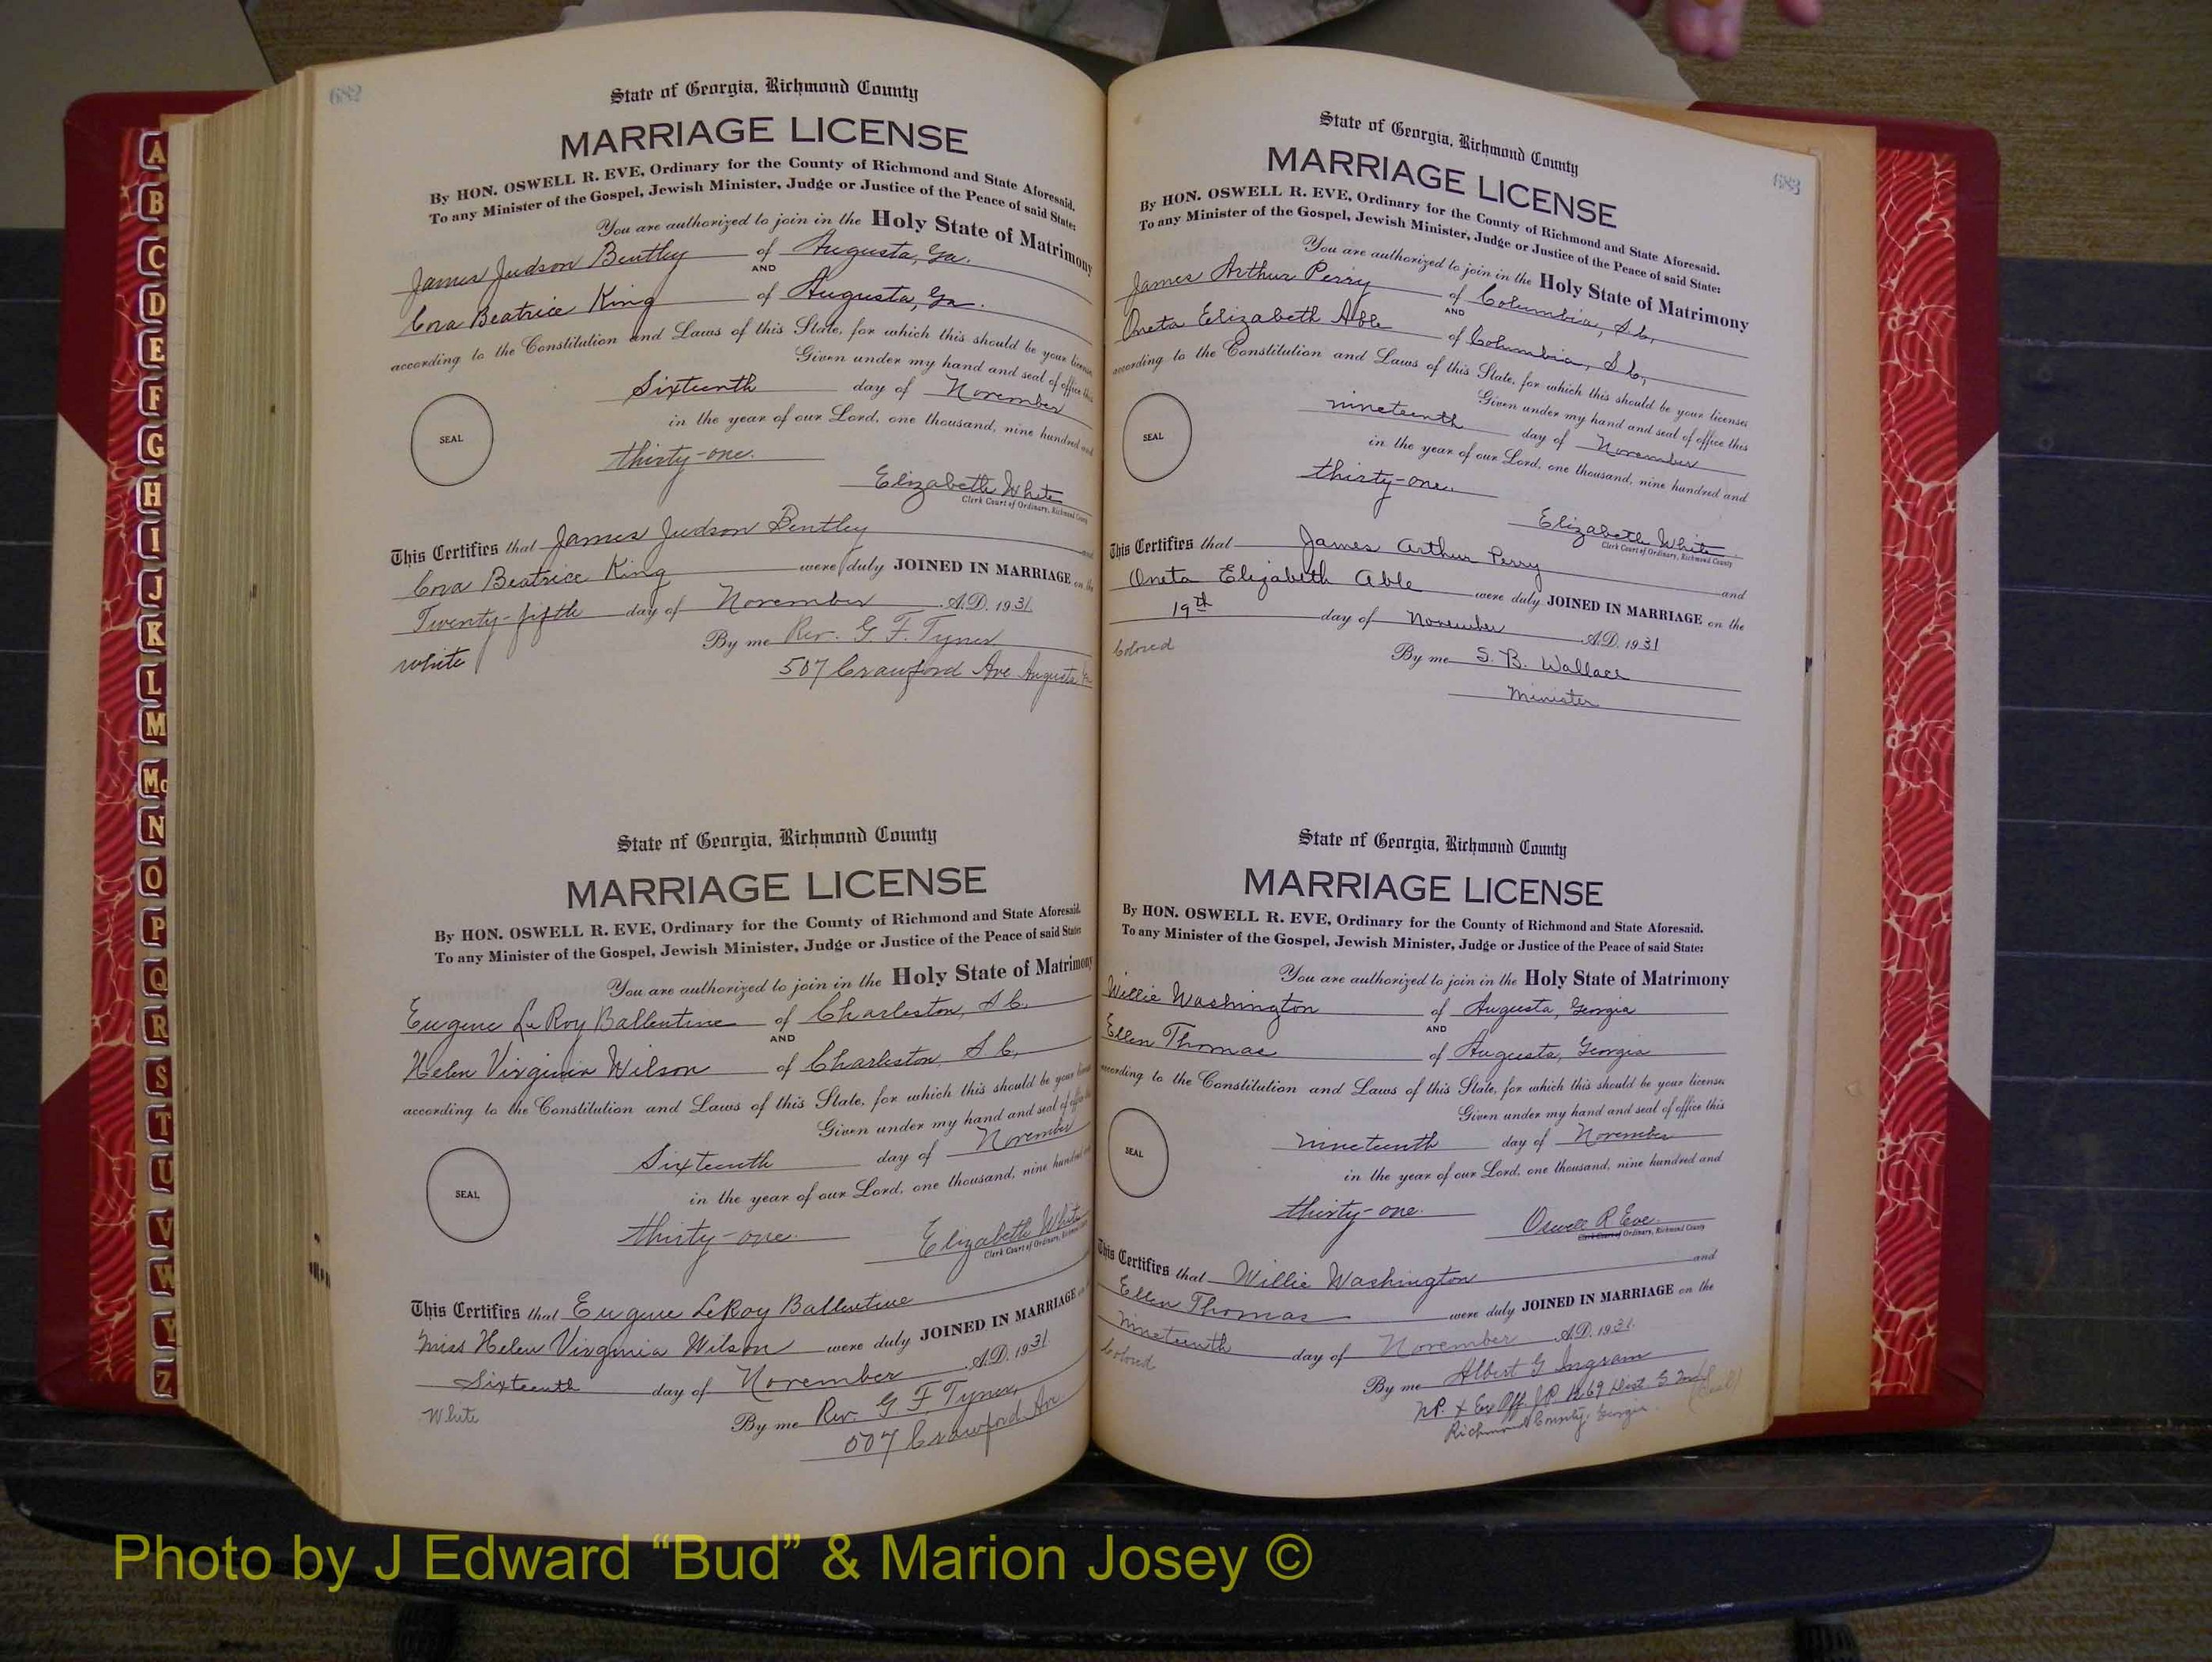 682
State of Georgia, Richmond County
MARRIAGE LICENSE
By HON. OSWELL R. EVE, Ordinary for the County of Richmond and State Aforesaid.
To any Minister of the Gospel, Jewish Minister, Judge or Justice of the Peace of said State:
You are authorized to join in the Holy State of Matrimony
James Judson Bentley of Augusta, Ga.
AND
Cora Beatrice King of Augusta, Ga.
according to the Constitution and Laws of this State, for which this should be your license
Given under my hand and seal of office this
Sixteenth day of November
SEAL
in the year of our Lord, one thousand, nine hundred and
thirty-one.
Elizabeth White
Clerk Court of Ordinary, Richmond County
This Certifies that James Judson Bentley and
Cora Beatrice King were duly JOINED IN MARRIAGE on the
Twenty-fifth day of November A.D. 1931
By me Rev. G. F. Tyner
White
507 Crawford Ave Augusta
State of Georgia, Richmond County
MARRIAGE LICENSE
By HON. OSWELL R. EVE, Ordinary for the County of Richmond and State Aforesaid.
To any Minister of the Gospel, Jewish Minister, Judge or Justice of the Peace of said State:
You are authorized to join in the Holy State of Matrimony
Eugene LeRoy Ballentine of Charleston, S.C.
AND
Helen Virginia Wilson of Charleston, S.C.
according to the Constitution and Laws of this State, for which this should be your
Given under my hand and seal of office
Sixteenth day of November
SEAL
in the year of our Lord, one thousand, nine hundred
thirty-one.
Elizabeth White
Clerk Court of Ordinary, Richmond
This Certifies that Eugene LeRoy Ballentine
Miss Helen Virginia Wilson were duly JOINED IN MARRIAGE
Sixteenth day of November A.D. 1931
White
By me Rev. G. F. Tyner,
507 Crawford Av
683
State of Georgia, Richmond County
MARRIAGE LICENSE
By HON. OSWELL R. EVE, Ordinary for the County of Richmond and State Aforesaid.
To any Minister of the Gospel, Jewish Minister, Judge or Justice of the Peace of said State:
You are authorized to join in the Holy State of Matrimony
James Arthur Perry of Columbia, S.C.,
AND
Oneta Elizabeth Able of Columbia, S.C.,
according to the Constitution and Laws of this State, for which this should be your licenses
Given under my hand and seal of office this
nineteenth day of November
SEAL
in the year of our Lord, one thousand, nine hundred and
thirty-one.
Elizabeth White
Clerk Court of Ordinary, Richmond County
This Certifies that James Arthur Perry and
Oneta Elizabeth Able were duly JOINED IN MARRIAGE on the
19th day of November A.D. 1931
Colored
By me S. B. Wallace
Minister
State of Georgia, Richmond County
MARRIAGE LICENSE
By HON. OSWELL R. EVE, Ordinary for the County of Richmond and State Aforesaid.
To any Minister of the Gospel, Jewish Minister, Judge or Justice of the Peace of said State:
You are authorized to join in the Holy State of Matrimony
Willie Washington of Augusta, Georgia
AND
Ellen Thomas of Augusta, Georgia
according to the Constitution and Laws of this State, for which this should be your licenses
Given under my hand and seal of office this
nineteenth day of November
SEAL
in the year of our Lord, one thousand, nine hundred and
thirty-one.
Oswell R Eve
Clerk Court of Ordinary, Richmond County
This Certifies that Willie Washington and
Ellen Thomas were duly JOINED IN MARRIAGE on the
Nineteenth day of November A.D. 1931.
Colored
By me Albert G Ingram
N.P. & Ex Off. J.P. 1269 Dist. G.M.
Richmond County, Georgia.
A
B
C
D
E
F
G
H
I
J
K
L
M
Mc
N
O
P
Q
R
S
T
U
V
W
Y
Z
Photo by J Edward “Bud” & Marion Josey ©